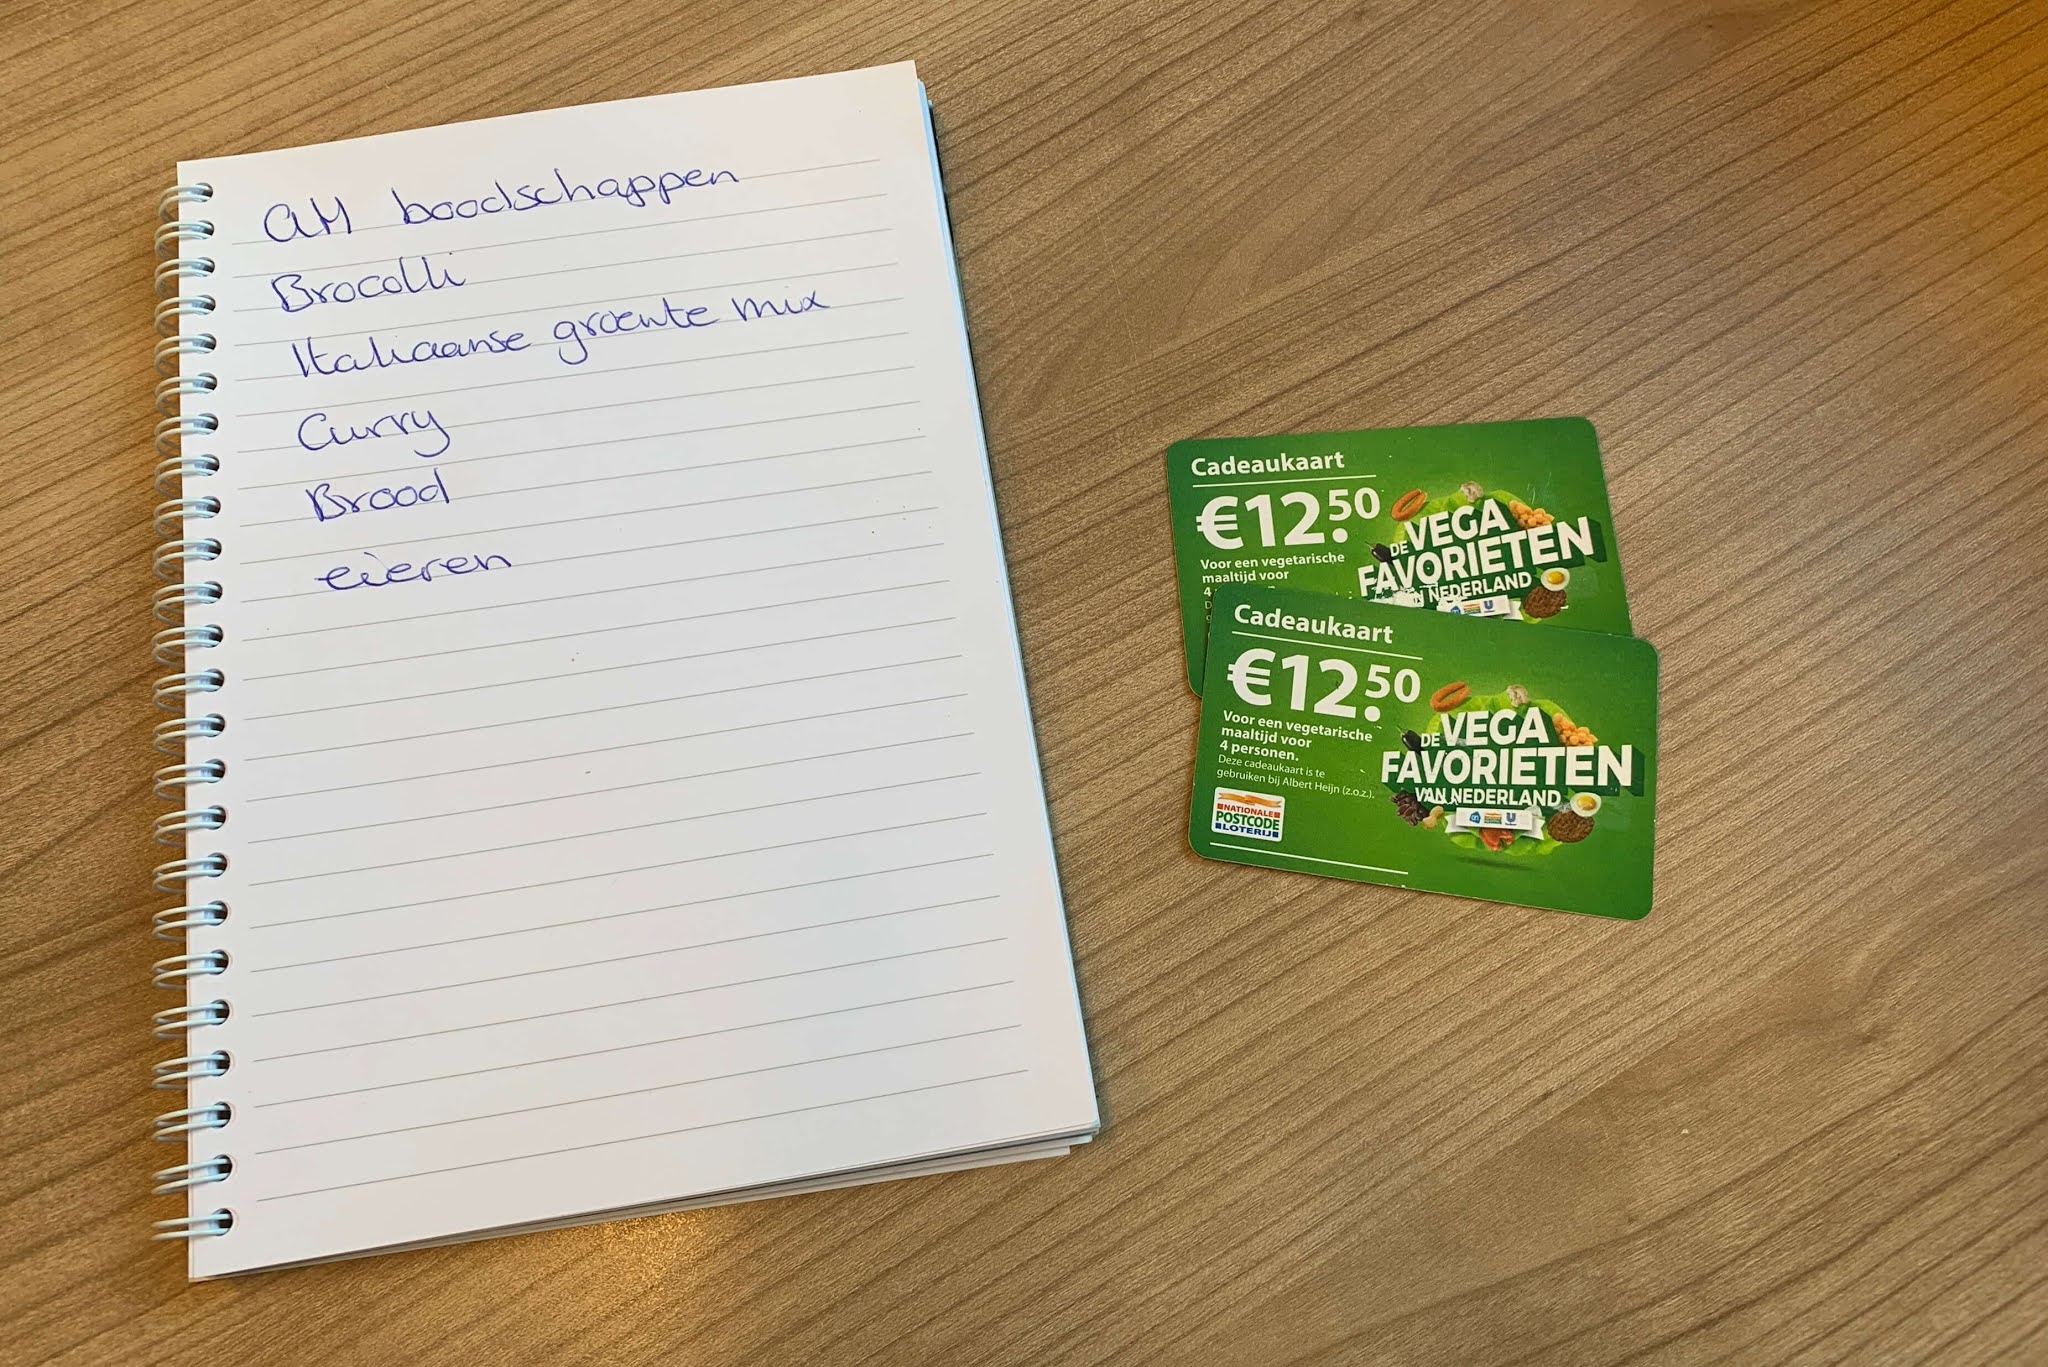 AH boodschappen
Brocolli
Italiaanse groente mix
Curry
Brood
eieren
Cadeaukaart
€12.50
Voor een vegetarische
maaltijd voor
4
DE VEGA
FAVORIETEN
VAN NEDERLAND
Cadeaukaart
€12.50
Voor een vegetarische
maaltijd voor
4 personen.
Deze cadeaukaart is te
gebruiken bij Albert Heijn (z.o.z.).
NATIONALE
POSTCODE
LOTERIJ
DE VEGA
FAVORIETEN
VAN NEDERLAND